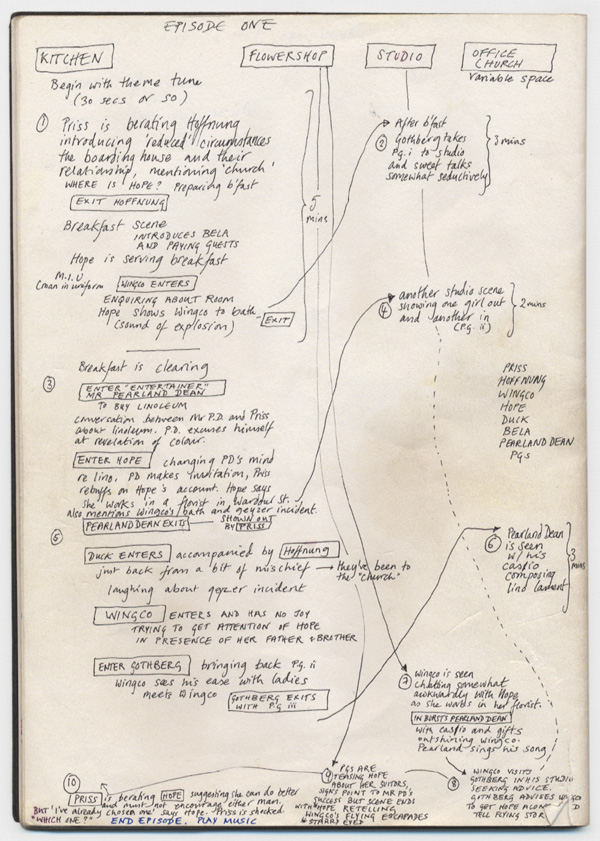 EPISODE ONE
KITCHEN
FLOWERSHOP
STUDIO
OFFICE
CHURCH
variable space
Begin with theme tune
(30 secs or so)
① Priss is berating Hoffnung
introducing reduced circumstances
the boarding house and their
relationship, mentioning 'church'
WHERE IS HOPE? Preparing b'fast
EXIT HOFFNUNG
Breakfast scene
INTRODUCES BELA
AND PAYING GUESTS
Hope is serving breakfast
M.I.U
Cman in uniform
WINGCO ENTERS
ENQUIRING ABOUT ROOM
Hope shows Wingco to bath
(sound of explosion)
EXIT
5
mins
After b'fast
② Gothberg takes
P.g. i to studio
and sweet talks
somewhat seductively
3 mins
④ another studio scene
showing one girl out
and another in
(P.g. ii)
2 mins
Breakfast is clearing
③ ENTER "ENTERTAINER"
MR PEARLAND DEAN
TO BUY LINOLEUM
conversation between Mr P.D. and Priss
about linoleum. P.D. excuses himself
at revelation of colour.
ENTER HOPE changing PD's mind
re lino. PD makes invitation, Priss
rebuffs on Hope's account. Hope says
she works in a florist in Wardour St.
also mentions Wingco's bath and geyzer incident.
PEARLAND DEAN EXITS SHOWN OUT
BY PRISS
PRISS
HOFFNUNG
WINGCO
HOPE
DUCK
BELA
PEARLAND DEAN
PGs
⑤
DUCK ENTERS accompanied by Hoffnung
just back from a bit of mischief → they've been to
the "church"
laughing about geyzer incident
WINGCO ENTERS AND HAS NO JOY
TRYING TO GET ATTENTION OF HOPE
IN PRESENCE OF HER FATHER & BROTHER
ENTER GOTHBERG bringing back P.g. ii
Wingco sees his ease with ladies
meets Wingco
GOTHBERG EXITS
WITH P.G iii
⑥ Pearland Dean
is seen
w/ his
casio
composing
lino lament
3
mins
⑦ Wingco is seen
chatting somewhat
awkwardly with Hope
as she works in her florist.
IN BURSTS PEARLAND DEAN
with casio and gifts
outshining wingco.
Pearland sings his song
⑧ WINGCO VISITS
GOTHBERG IN HIS STUDIO
SEEKING ADVICE.
GOTHBERG ADVISES
TO GET HOPE
TELL FLYING
⑨ PGS ARE
TEASING HOPE
ABOUT HER SUITORS,
SIGNS POINT TO MR PD'S
SUCCESS BUT SCENE ENDS
WITH HOPE RETELLING
WINGCO'S FLYING ESCAPADES
STARRY EYED
⑩
PRISS is berating HOPE suggesting she can do better
and must not encourage either man.
BUT 'I've already chosen one' says Hope. Priss is shocked
"WHICH ONE?" END EPISODE. PLAY MUSIC